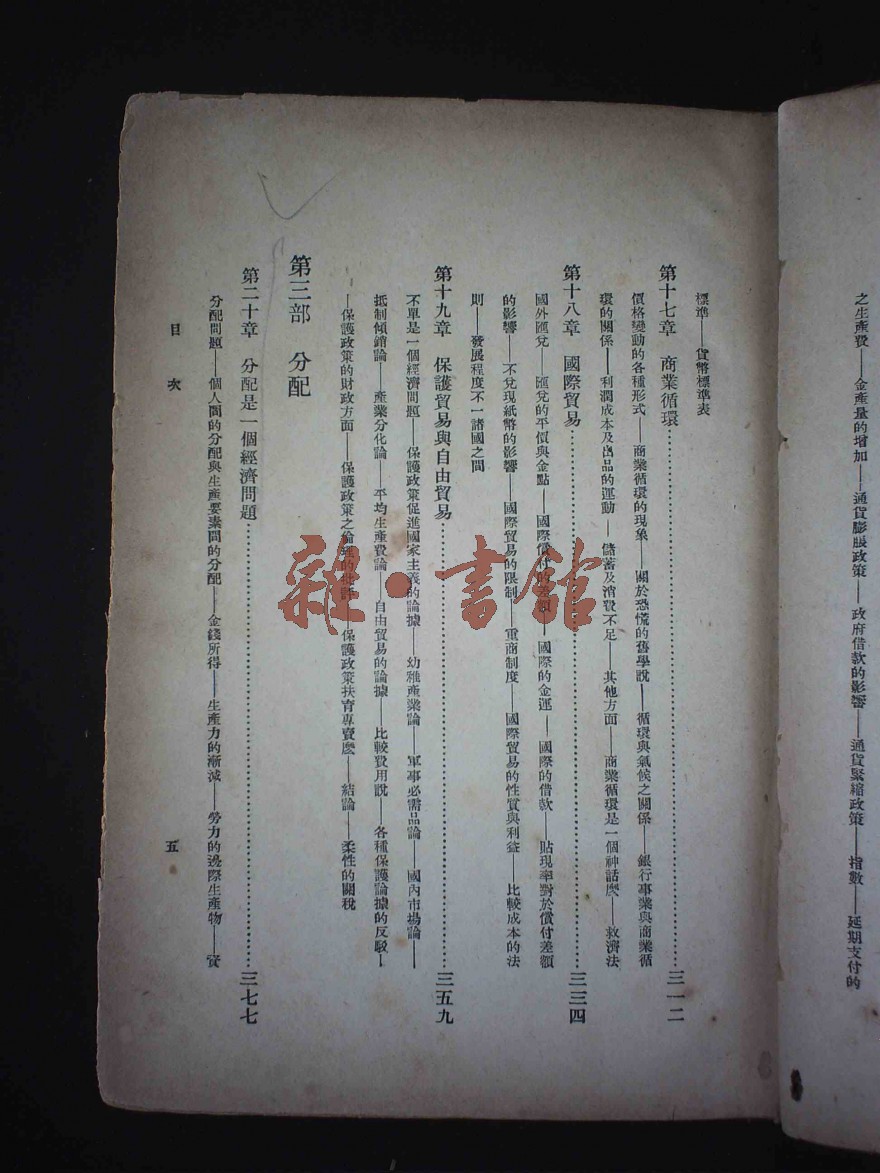 之生產費——金產量的增加——通貨膨脹政策——政府借款的影響——通貨緊縮政策——指數——延期支付的
標準——貨幣標準表
第十七章 商業循環……三一二
價格變動的各種形式——商業循環的現象——關於恐慌的舊學說——循環與氣候之關係——銀行事業與商業循
環的關係——利潤成本及出品的運動——儲蓄及消費不足——其他方面——商業循環是一個神話麽——救濟法
第十八章 國際貿易……三三四
國外匯兌——匯兌的平價與金點——國際償付的差額——國際的金運——國際的借款——貼現率對於償付差額
的影響——不兌現紙幣的影響——國際貿易的限制——重商制度——國際貿易的性質與利益——比較成本的法
則——發展程度不一諸國之間
第十九章 保護貿易與自由貿易……三五九
不單是一個經濟問題——保護政策促進國家主義的論據——幼稚產業論——軍事必需品論——國內市場論——
抵制傾銷論——產業分化論——平均生產費論——自由貿易的論據——比較費用說——各種保護論據的反駁—
—保護政策的財政方面——保護政策之倫理的批評——保護政策扶育專賣麽——結論——柔性的關稅
第三部 分配
第二十章 分配是一個經濟問題……三七七
分配問題——個人間的分配與生產要素間的分配——金錢所得——生產力的漸減——勞力的邊際生產物——資
目次
五
雜·書館